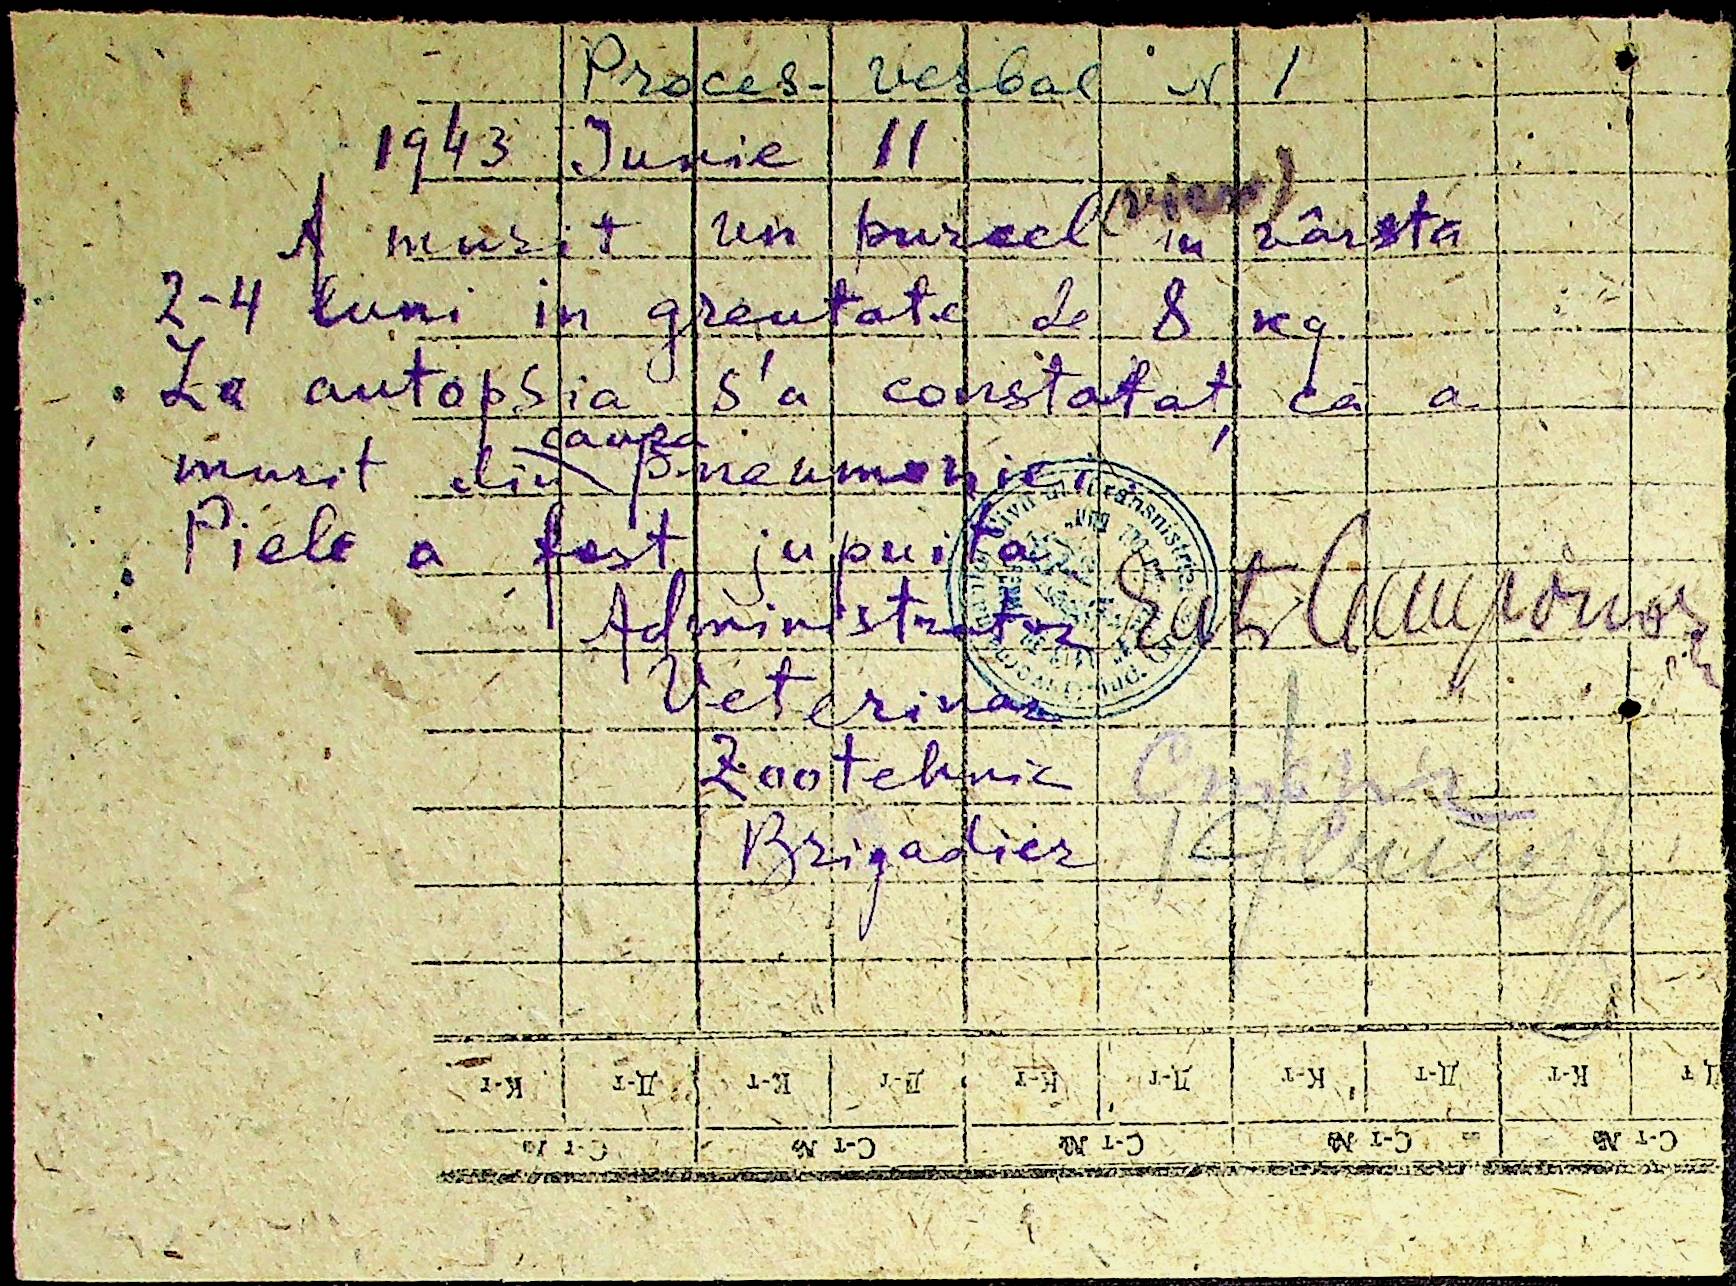 Proces-verbal N 1
1943 Junie 11
A murit un purcel (vier) in vârsta
2-4 luni in greutate de 8 kg.
La autopsia s'a constatat, că a
murit din causa pneumoniei.
Piele a fost jupuita
Administrator
Veterinar
Zootehnic
Brigadier
К-т Д-т К-т Д-т К-т Д-т К-т Д-т К-т Д-т
С-т № С-т № С-т № С-т № С-т №